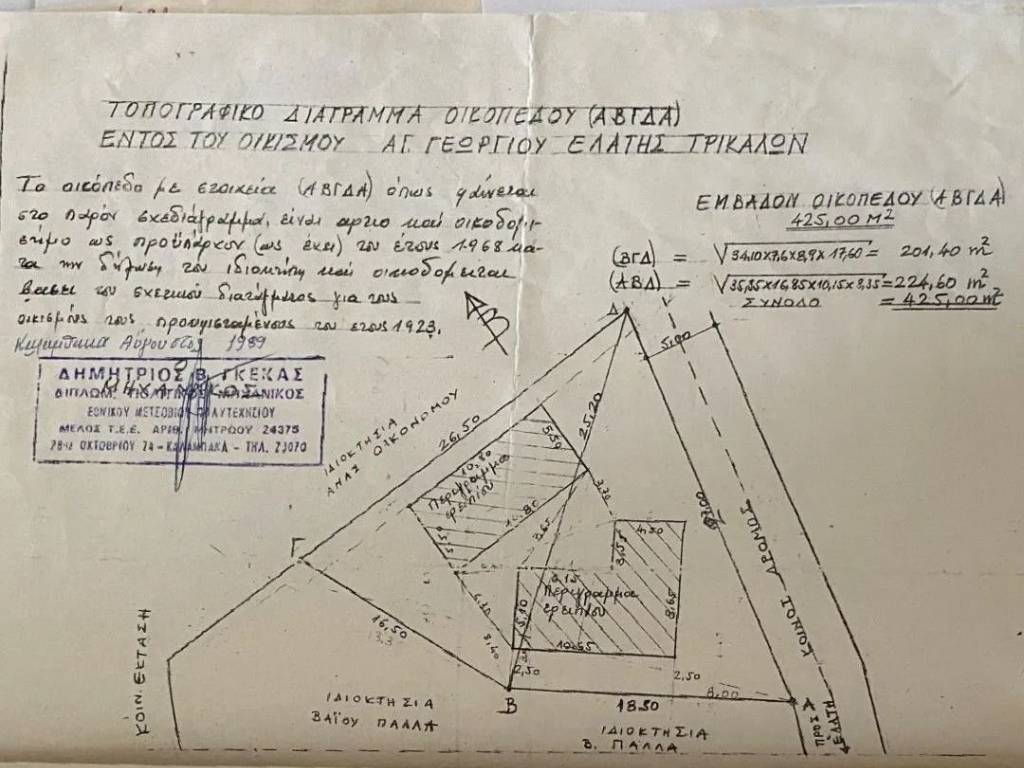 ΤΟΠΟΓΡΑΦΙΚΟ ΔΙΑΓΡΑΜΜΑ ΟΙΚΟΠΕΔΟΥ (ΑΒΓΔΑ)
ΕΝΤΟΣ ΤΟΥ ΟΙΚΙΣΜΟΥ ΑΓ. ΓΕΩΡΓΙΟΥ ΕΛΑΤΗΣ ΤΡΙΚΑΛΩΝ
Το οικόπεδο με στοιχεία (ΑΒΓΔΑ) όπως φαίνεται
στο παρόν σχεδιάγραμμα, είναι αρτιο και οικοδομι-
σημο ως προϋπάρχον (ως έχει) του έτους 1968 κα-
τα την δήλωση του ιδιοκτήτη και οικοδομείται
βασει του σχετικού διατάγματος για τους
οικισμούς τους προυφισταμένους του ετους 1923.
Καλαμπακα Αύγουστος 1989
ΔΗΜΗΤΡΙΟΣ Β. ΓΚΕΚΑΣ
ΜΗΧΑΝΙΚΟΣ
ΔΙΠΛΩΜ. ΠΟΛΙΤΙΚΟΣ ΜΗΧΑΝΙΚΟΣ
ΕΘΝΙΚΟΥ ΜΕΤΣΟΒΙΟΥ ΠΟΛΥΤΕΧΝΕΙΟΥ
ΜΕΛΟΣ Τ.Ε.Ε. ΑΡΙΘ. ΜΗΤΡΩΟΥ 24375
28ης ΟΚΤΩΒΡΙΟΥ 74 - ΚΑΛΑΜΠΑΚΑ - ΤΗΛ. 23070
ΕΜΒΑΔΟΝ ΟΙΚΟΠΕΔΟΥ (ΑΒΓΔΑ)
425,00 Μ²
(ΒΓΔ) = √34,10x7,6x8,9x17,60 = 201,40 m²
(ΑΒΔ) = √35,35x16,85x10,15x8,35 = 224,60 m²
ΣΥΝΟΛΟ = 425,00 m²
Δ
5,00
26,50
ΙΔΙΟΚΤΗΣΙΑ
ΑΝΑΣ ΟΙΚΟΝΟΜΟΥ
25,20
5,50
10,80
Περίγραμμα
ερειπίου
10,85
5,50
3,70
8,65
Γ
4,50
3,55
8,65
9,15
Περίγραμμα
ερειπίου
5,10
10,65
ΚΟΙΝΟΣ ΔΡΟΜΟΣ
16,50
3,40
2,50
2,50
8,00
Β
18,50
Α
ΚΟΙΝ. ΕΚΤΑΣΗ
ΙΔΙΟΚΤΗΣΙΑ
ΒΑΪΟΥ ΠΑΛΛΑ
ΙΔΙΟΚΤΗΣΙΑ
Β. ΠΑΛΛΑ
ΠΡΟΣ
ΕΛΑΤΗ